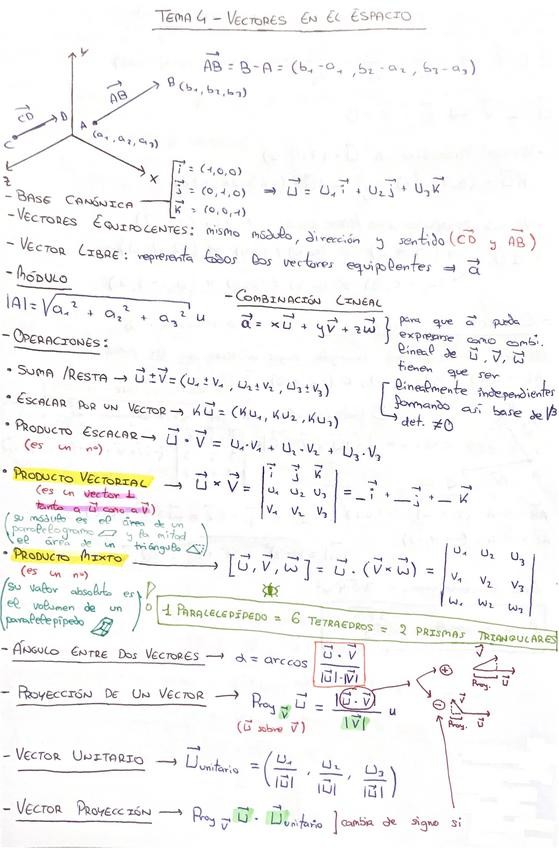 TEMA 4 - VECTORES EN EL ESPACIO
Y
AB = B - A = (b1 - a1, b2 - a2, b3 - a3)
B (b1, b2, b3)
AB
CD
D
C
A
(a1, a2, a3)
X
Z
- BASE CANÓNICA
i = (1,0,0)
j = (0,1,0) ⇒ u = u1 i + u2 j + u3 k
k = (0,0,1)
- VECTORES EQUIPOLENTES: mismo módulo, dirección y sentido (CD y AB)
- VECTOR LIBRE: representa todos los vectores equipolentes ⇒ a
- MÓDULO
|A| = √a1² + a2² + a3² u
- COMBINACIÓN LINEAL
a = xu + yv + zw
para que a pueda
expresarse como combi.
lineal de u, v, w
tienen que ser
linealmente independientes
formando así base de V3
→ det. ≠ 0
- OPERACIONES:
• SUMA / RESTA → u ± v = (u1 ± v1, u2 ± v2, u3 ± v3)
• ESCALAR POR UN VECTOR → Ku = (Ku1, Ku2, Ku3)
• PRODUCTO ESCALAR → u · v = u1·v1 + u2·v2 + u3·v3
(es un nº)
• PRODUCTO VECTORIAL → u × v = | i j k | = _ i + _ j + _ k
u1 u2 u3
v1 v2 v3
(es un vector ⊥
tanto a u como a v)
(su módulo es el área de un
paralelogramo y la mitad
el área de un triángulo)
• PRODUCTO MIXTO → [u, v, w] = u · (v × w) = | u1 u2 u3 |
v1 v2 v3
w1 w2 w3
(es un nº)
(su valor absoluto es
el volumen de un
paralelepípedo)
1 PARALELEPÍPEDO = 6 TETRAEDROS = 2 PRISMAS TRIANGULARES
- ÁNGULO ENTRE DOS VECTORES → α = arccos u · v / |u|·|v|
+
v
Proy. u
- PROYECCIÓN DE UN VECTOR → Proy v u = |u · v| / |v| u
(u sobre v)
-
v
Proy. u
- VECTOR UNITARIO → u unitario = (u1/|u|, u2/|u|, u3/|u|)
- VECTOR PROYECCIÓN → Proy v u · u unitario ] cambia de signo si